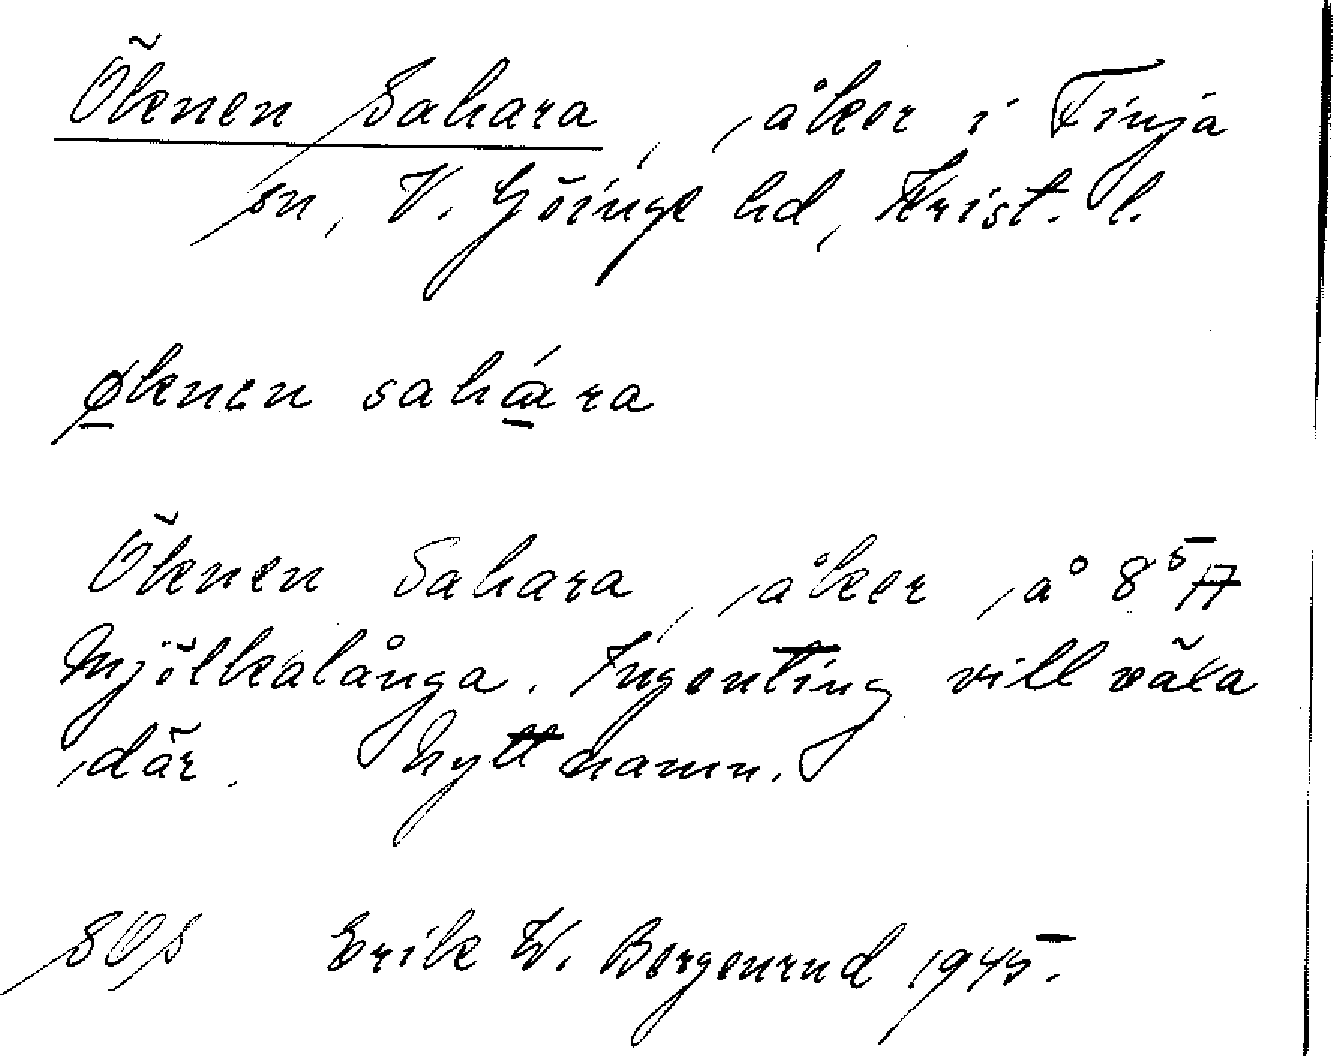 Öknen Sahara, åker i Finja
sn, V. Göinge hd, Krist. l.
øknen sahára
Öknen Sahara, åker å 8⁵ A
Mjölkalånga. Ingenting vill växa
där. Nytt namn.
SOS Erik W. Bergenrud 1945.